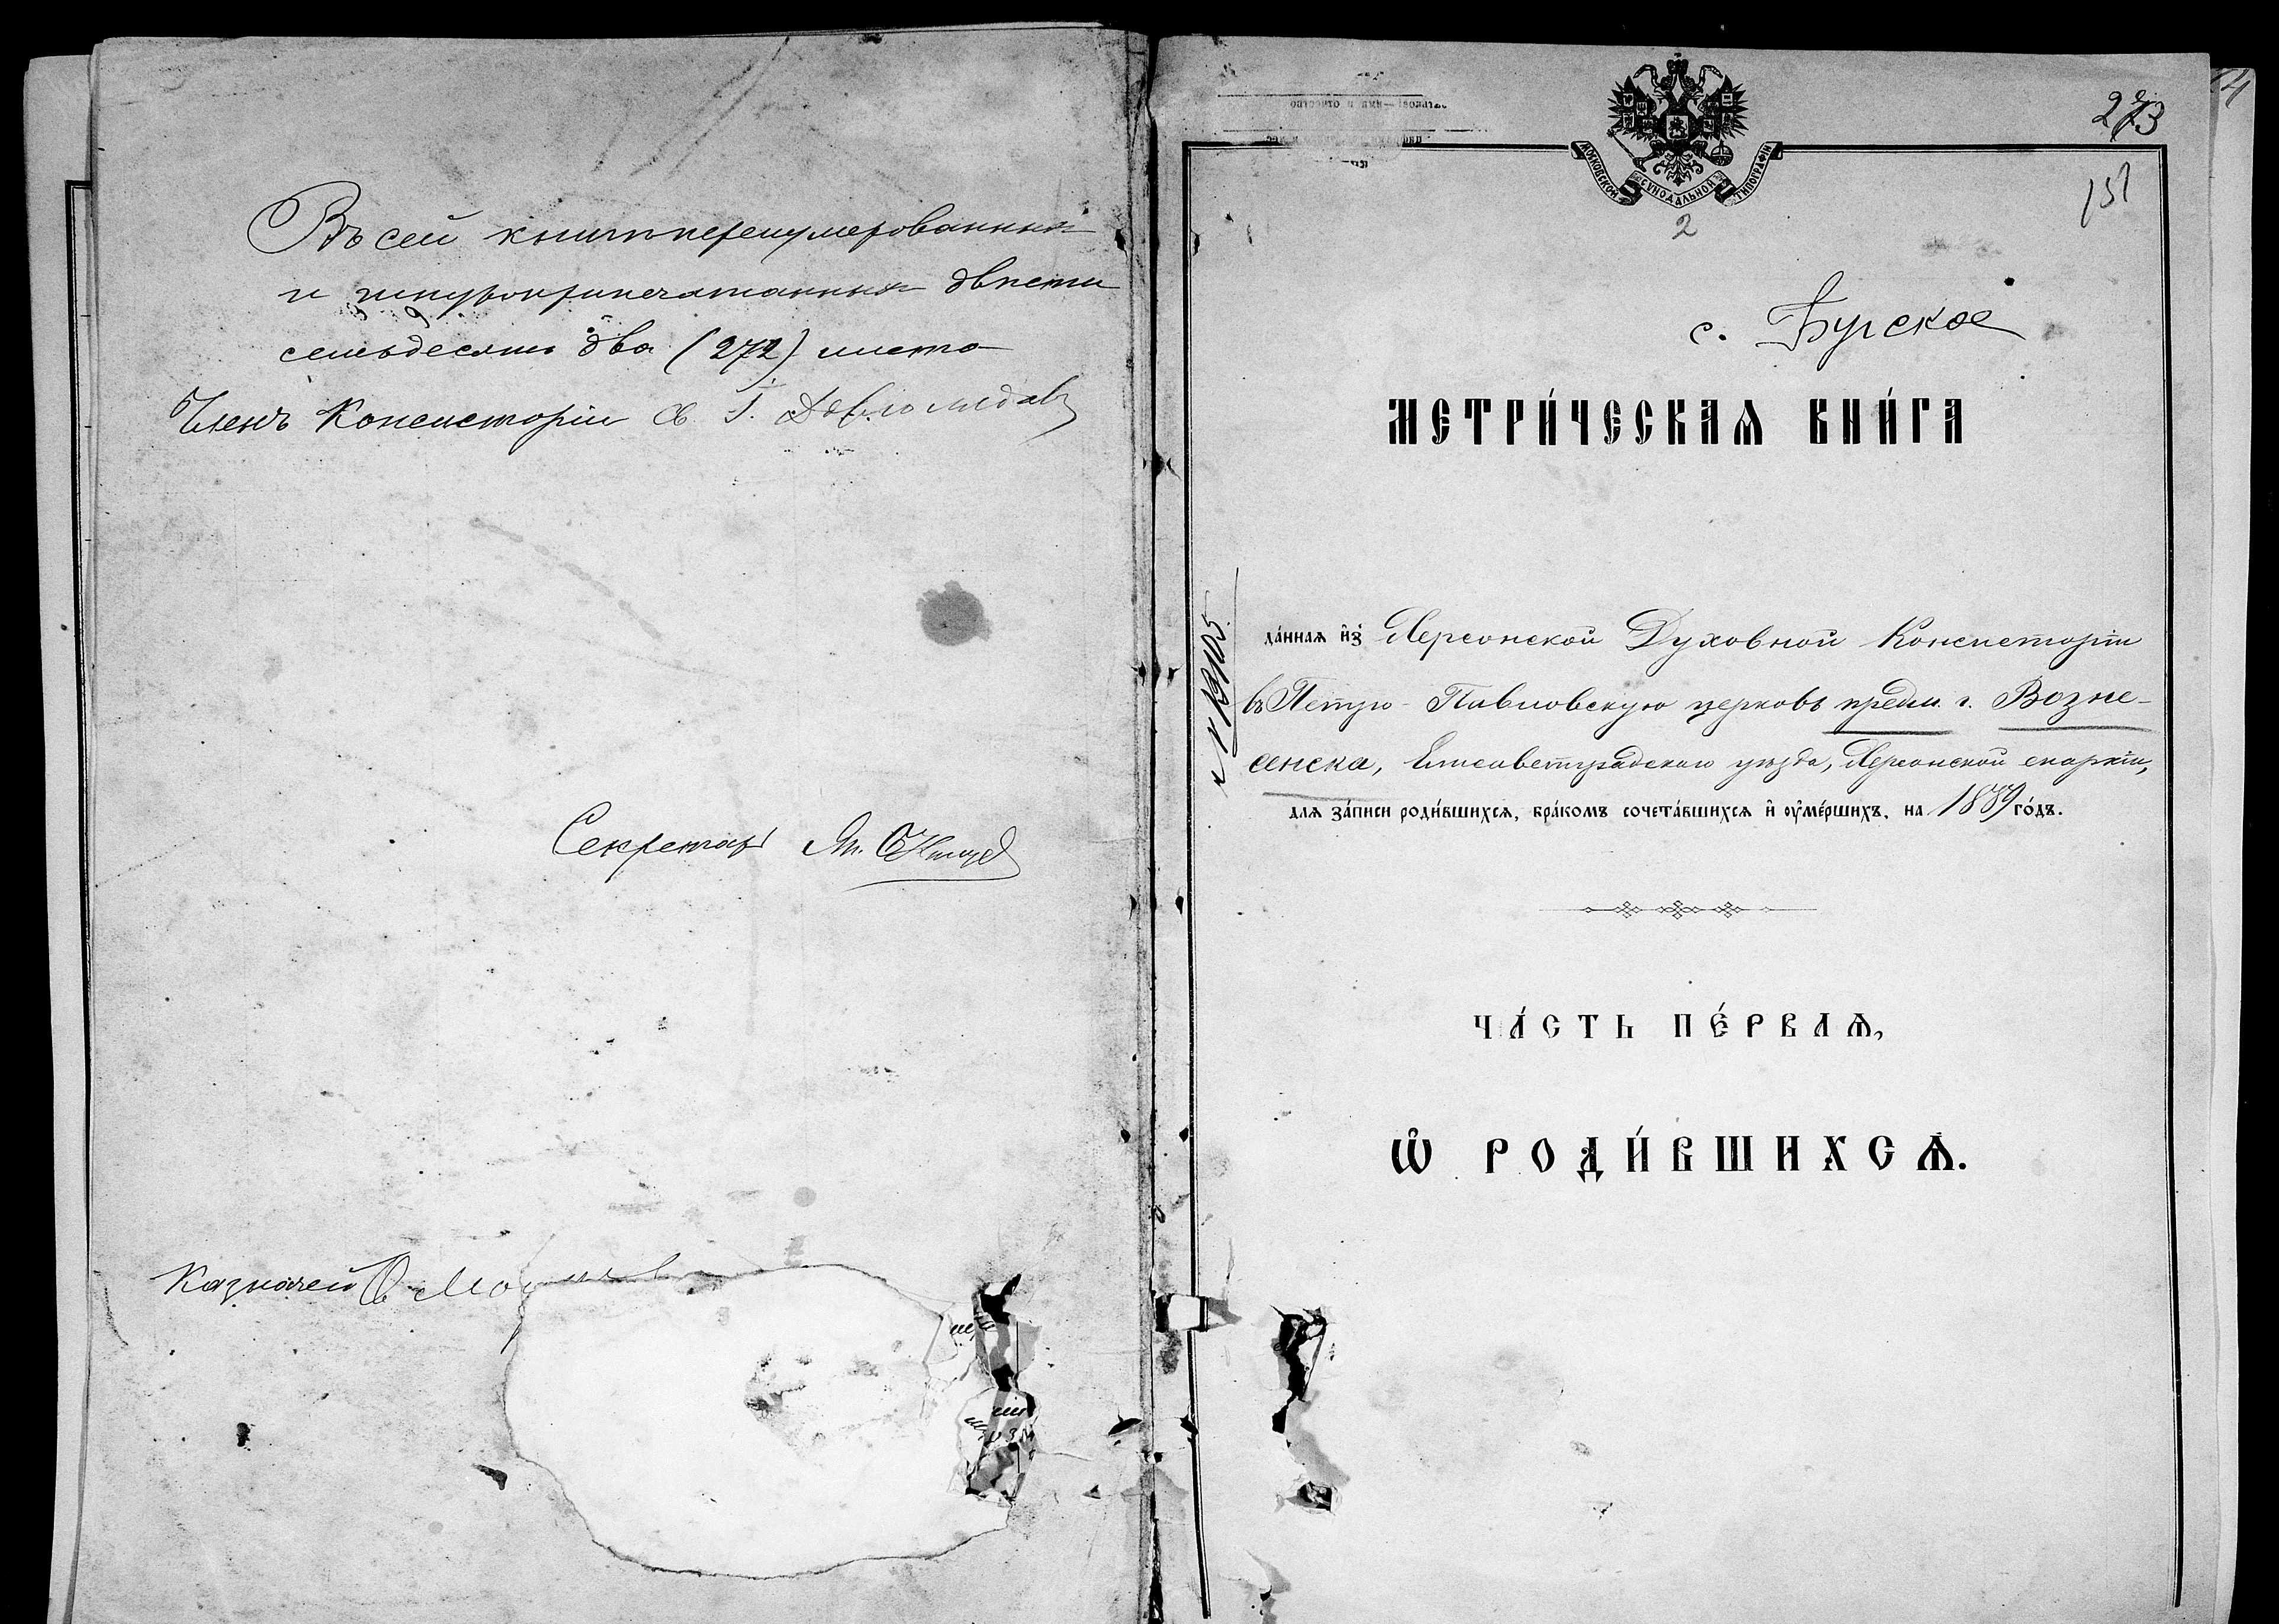 Въ сей книгѣ перенумерованныхъ
и шнурокрипечатанныхъ двѣсти
семьдесятъ два (272) листа
Членъ Консисторіи Св. І.
Секретарь
Казначей Св.
273
151
МОСКОВСКОЙ СѴНОДАЛЬНОЙ ТИПОГРАФІИ
2
с. Бугское
МЕТРИ́ЧЕСКАѦ КНИ́ГА
№ 19105.
да́ннаѧ и҆з̾ Херсонской Духовной Консисторіи
въ Петро-Павловскую церковь предм. г. Возне-
сенска, Елисаветградскаго уѣзда, Херсонской епархіи,
длѧ за́писи роди́вшихсѧ, бра́комъ сочета́вшихсѧ и҆ ᲂу҆ме́ршихъ, на 1889 го́дъ.
ЧА́СТЬ ПЕ́РВАѦ,
Ѡ҆ РОДИ́ВШИХСѦ.